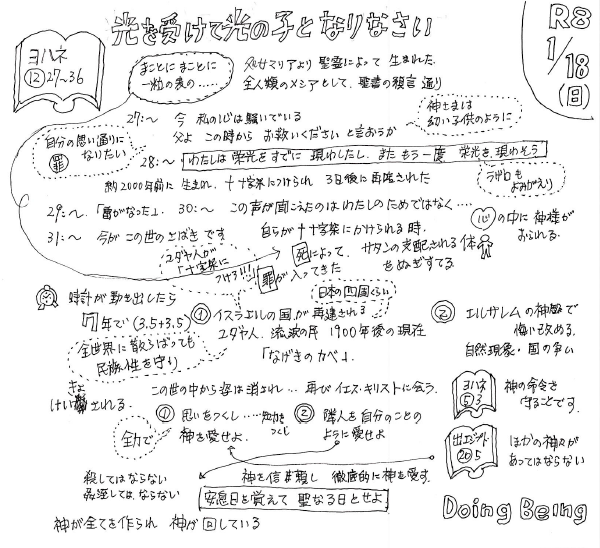 光を受けて光の子となりなさい
R8
1/18
(日)
ヨハネ
⑫27〜36
まことに まことに
一粒の麦の……
処女マリアより 聖霊によって 生まれた.
全人類のメシアとして、聖書の預言 通り
27:〜 今 私の心は騒いでいる
父よ この時から お救いください と言おうか
神さまは
幼い子供のように
自分の思い通りに
なりたい
罪
28:〜 わたしは栄光をすでに 現わしたし、また もう一度 栄光を現わそう
約2000年前に 生まれ、十字架につけられ 3日後に再度された
ラザロも
よみがえり
29:〜「雷がなった」. 30:〜 この声が聞こえたのは わたしのためではなく‥‥
31:〜 今が この世のさばき です 自らが十字架にかけられる時.
心の中に 神様が
おられる.
ユダヤ人が
「十字架に
つけろ!!!」
死によって、サタンの支配される体
をぬぎすてる
罪が入ってきた
時計が動き出したら
7年で (3.5+3.5)
日本の四国くらい
① イスラエルの国が再建される
ユダヤ人. 流浪の民 1900年後の現在
「なげきのカベ」
② エルサレムの神殿で
悔い改める.
自然現象・国の争い
全世界に散らばっても
民族性を守り
きょ
けい される.
この世の中から姿は消され… 再びイエス・キリストに会う.
ヨハネ
⑤3
神の命令を
守ることです.
全力で
① 思いをつくし……知力を
つくし
神を愛せよ.
② 隣人を自分のことの
ように愛せよ
出エジプト
⑳5
ほかの神々が
あってはならない
殺してはならない
姦淫しては ならない
神を信頼し 徹底的に神を愛す.
安息日を覚えて 聖なる日とせよ
Doing Being
神が全てを作られ 神が 回している